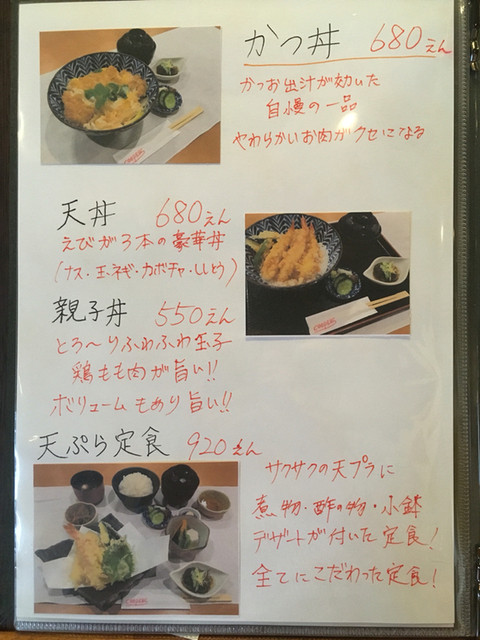 かつ丼 680えん
かつお出汁が効いた
自慢の一品
やわらかいお肉がクセになる
天丼 680えん
えびが3本の豪華丼
(ナス・玉ネギ・カボチャ・ししとう)
親子丼 550えん
とろ〜りふわふわ玉子
鶏もも肉が旨い!!
ボリュームもあり旨い!!
天ぷら定食 920えん
サクサクの天プラに
煮物・酢の物・小鉢
デザートが付いた定食!
全てにこだわった定食!